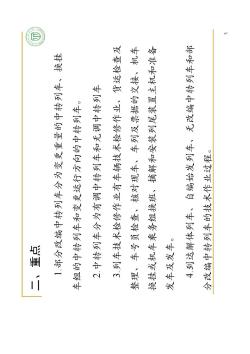 二、重点
1.部分改编中转列车分为变更重量的中转列车、换挂
车组的中转列车和变更运行方向的中转列车。
2.中转列车分为有调中转列车和无调中转列车
3.列车技术检修作业有车辆技术检修作业、货运检查及
整理、车号员检查、核对现车、车列及票据的交接、机车
换挂或机车乘务组换班、摘解和安装列尾装置主机和准备
发车及发车。
4.到达解体列车、自编始发列车、无改编中转列车和部
分改编中转列车的技术作业过程。